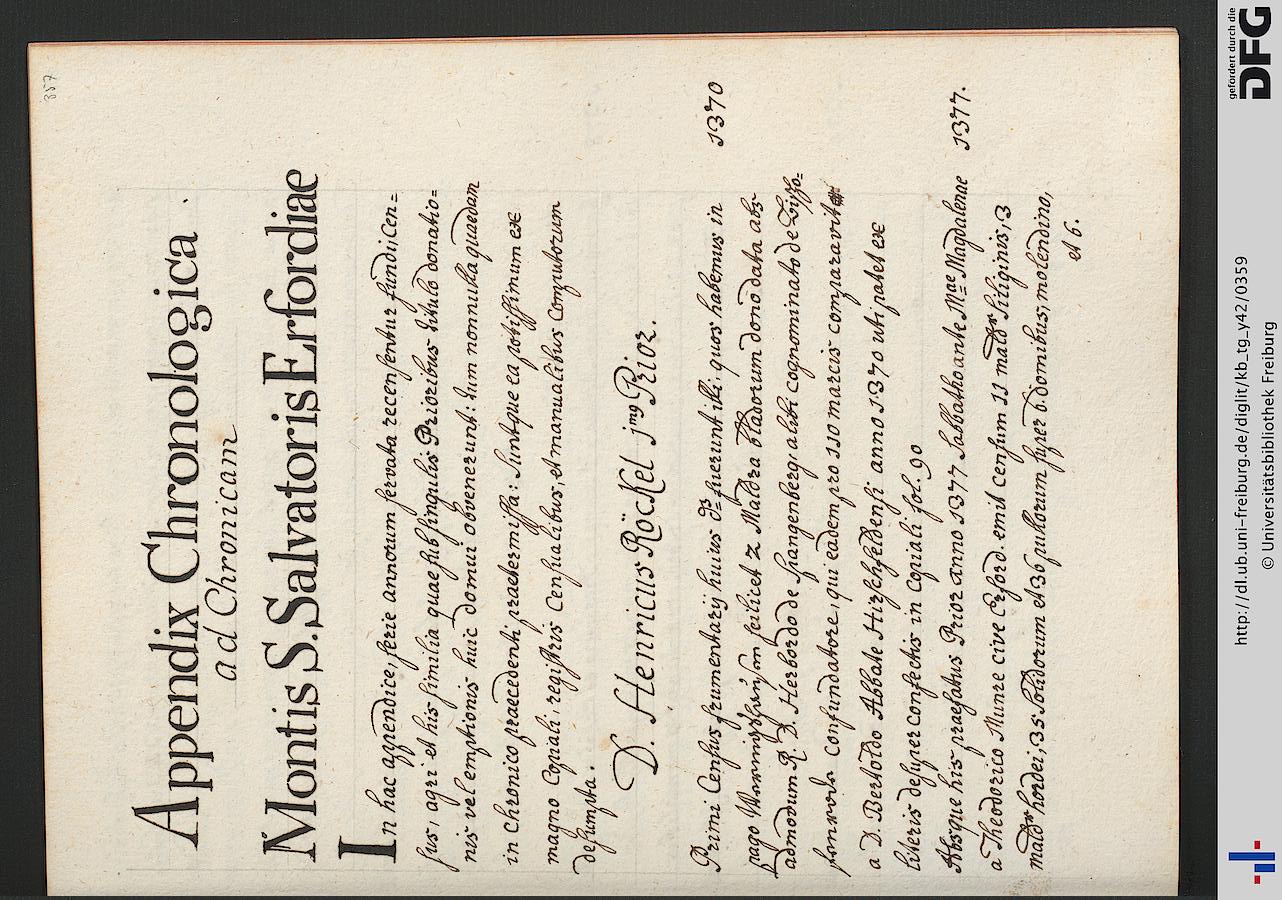 357
Appendix Chronologica
ad Chronicam
Montis S. Salvatoris Erfordiae
In hac appendice, serie annorum servata recensentur fundi, Cen=
sus, agri et his similia quae sub singulis Prioribus titulo donatio=
nis vel emptionis huic domui obvenerunt: tum nonnulla quaedam
in Chronico praecedenti praetermissa: Suntque ea potissimum ex
magno Copiali, registris Censualibus, et manualibus Computorum
desumpta.
D. Henricus Röckel jmus Prior.
Primi Census frumentarij huius Ds fuerunt illi, quos habemus in 1370
pago scilicet 2 Maldra bladorum dono data ab
admodum R. D. Herbordo de Spangenberg, alibi cognominato de
Confundatore, qui eadem pro 110 marcis comparavit
a D. Bertoldo Abbate Hirschfeldensi anno 1370 uti patet ex
literis desuper confectis in Copiali fol. 90
Absque his praefatus Prior anno 1377 Sabbatho ante Mae Magdalenae 1377.
a Theodorico Nunre cive Erford. emit censum 11 mald siliginis, 3
maldr hordei, 35 solidorum et 36 pullorum super 6. domibus, molendino,
et 6.
gefördert durch die
DFG
http://dl.ub.uni-freiburg.de/diglit/kb_tg_y42/0359
© Universitätsbibliothek Freiburg